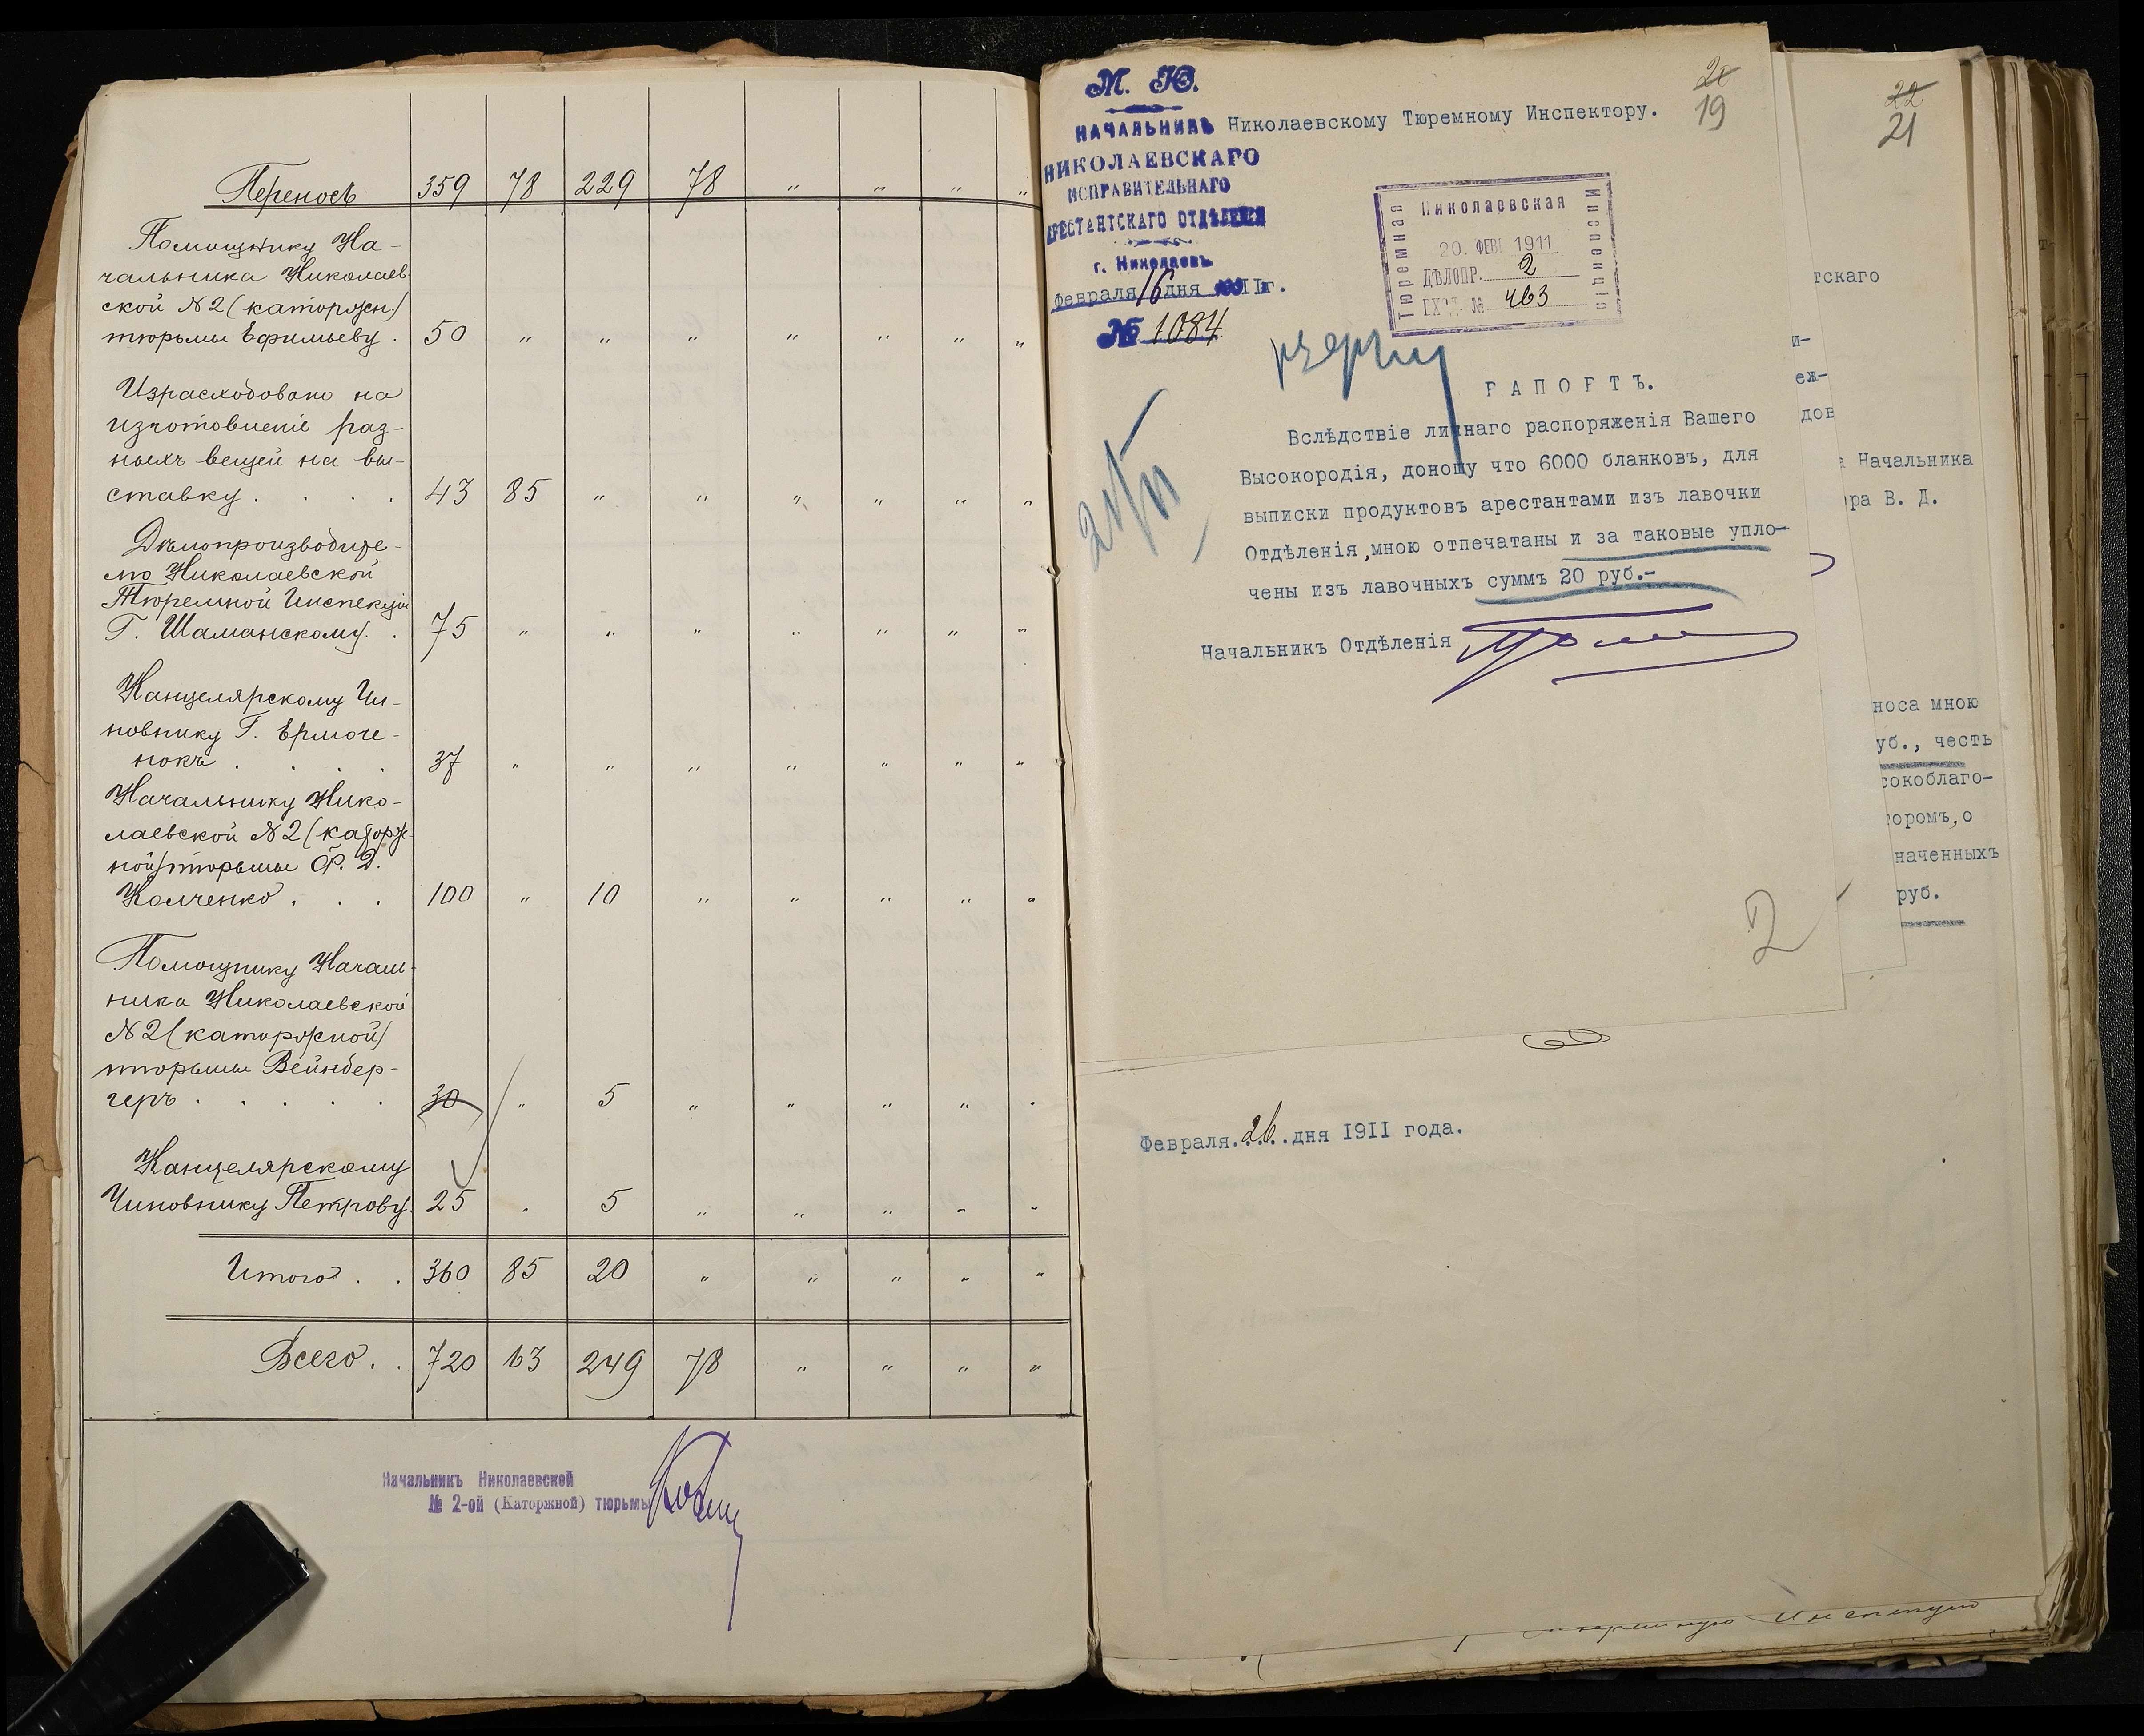 Переносъ 359 78 229 78 " " " "
Помощнику На-
чальника Николаев-
ской N2 (каторжн.)
тюрьмы Ефимьеву . 50 " " " " " " "
Израсходовано на
изготовленіе раз-
ныхъ вещей на вы-
ставку . . . . 43 85 " " " " " "
Дѣлопроизводите-
лю Николаевской
Тюремной Инспекціи
Г. Шаманскому . . 75 " " " " " " "
Канцелярскому Чи-
новнику Г. Ермоле-
нокъ . . . . 37 " " " " " " "
Начальнику Нико-
лаевской N2 (каторж-
ной) тюрьмы Ф. Д.
Колченко . . . 100 " 10 " " " " "
Помощнику Началь-
ника Николаевской
N2 (каторжной)
тюрьмы Вейнбер-
геръ . . . . . 30 " 5 " " " " "
Канцелярскому
Чиновнику Петрову. 25 " 5 " " " " "
Итого . . 360 85 20 " " " " "
Всего . . 720 63 249 78 " " " "
Начальникъ Николаевской
№ 2-ой (Каторжной) тюрьмы
М. Ю.
НАЧАЛЬНИКЪ
НИКОЛАЕВСКАГО
ИСПРАВИТЕЛЬНАГО
АРЕСТАНТСКАГО ОТДѢЛЕНІЯ
г. Николаевъ.
Февраля 16 дня 1911г.
№ 1084
Николаевскому Тюремному Инспектору.
21
19
Тюремная
Николаевская
Инспекція
20. ФЕВ. 1911
ДѢЛОПР. 2
ВХОД. № 463
РАПОРТЪ.
Вслѣдствіе личнаго распоряженія Вашего
Высокородія, доношу что 6000 бланковъ, для
выписки продуктовъ арестантами изъ лавочки
Отдѣленія, мною отпечатаны и за таковые упло-
чены изъ лавочныхъ суммъ 20 руб.-
Начальникъ Отдѣленія
2
Февраля.26.дня 1911 года.
22
21
тскаго
и-
еж-
дов
а Начальника
ра В. Д.
носа мною
уб., честь
сокоблаго-
оромъ, о
наченныхъ
руб.
Инспекцію